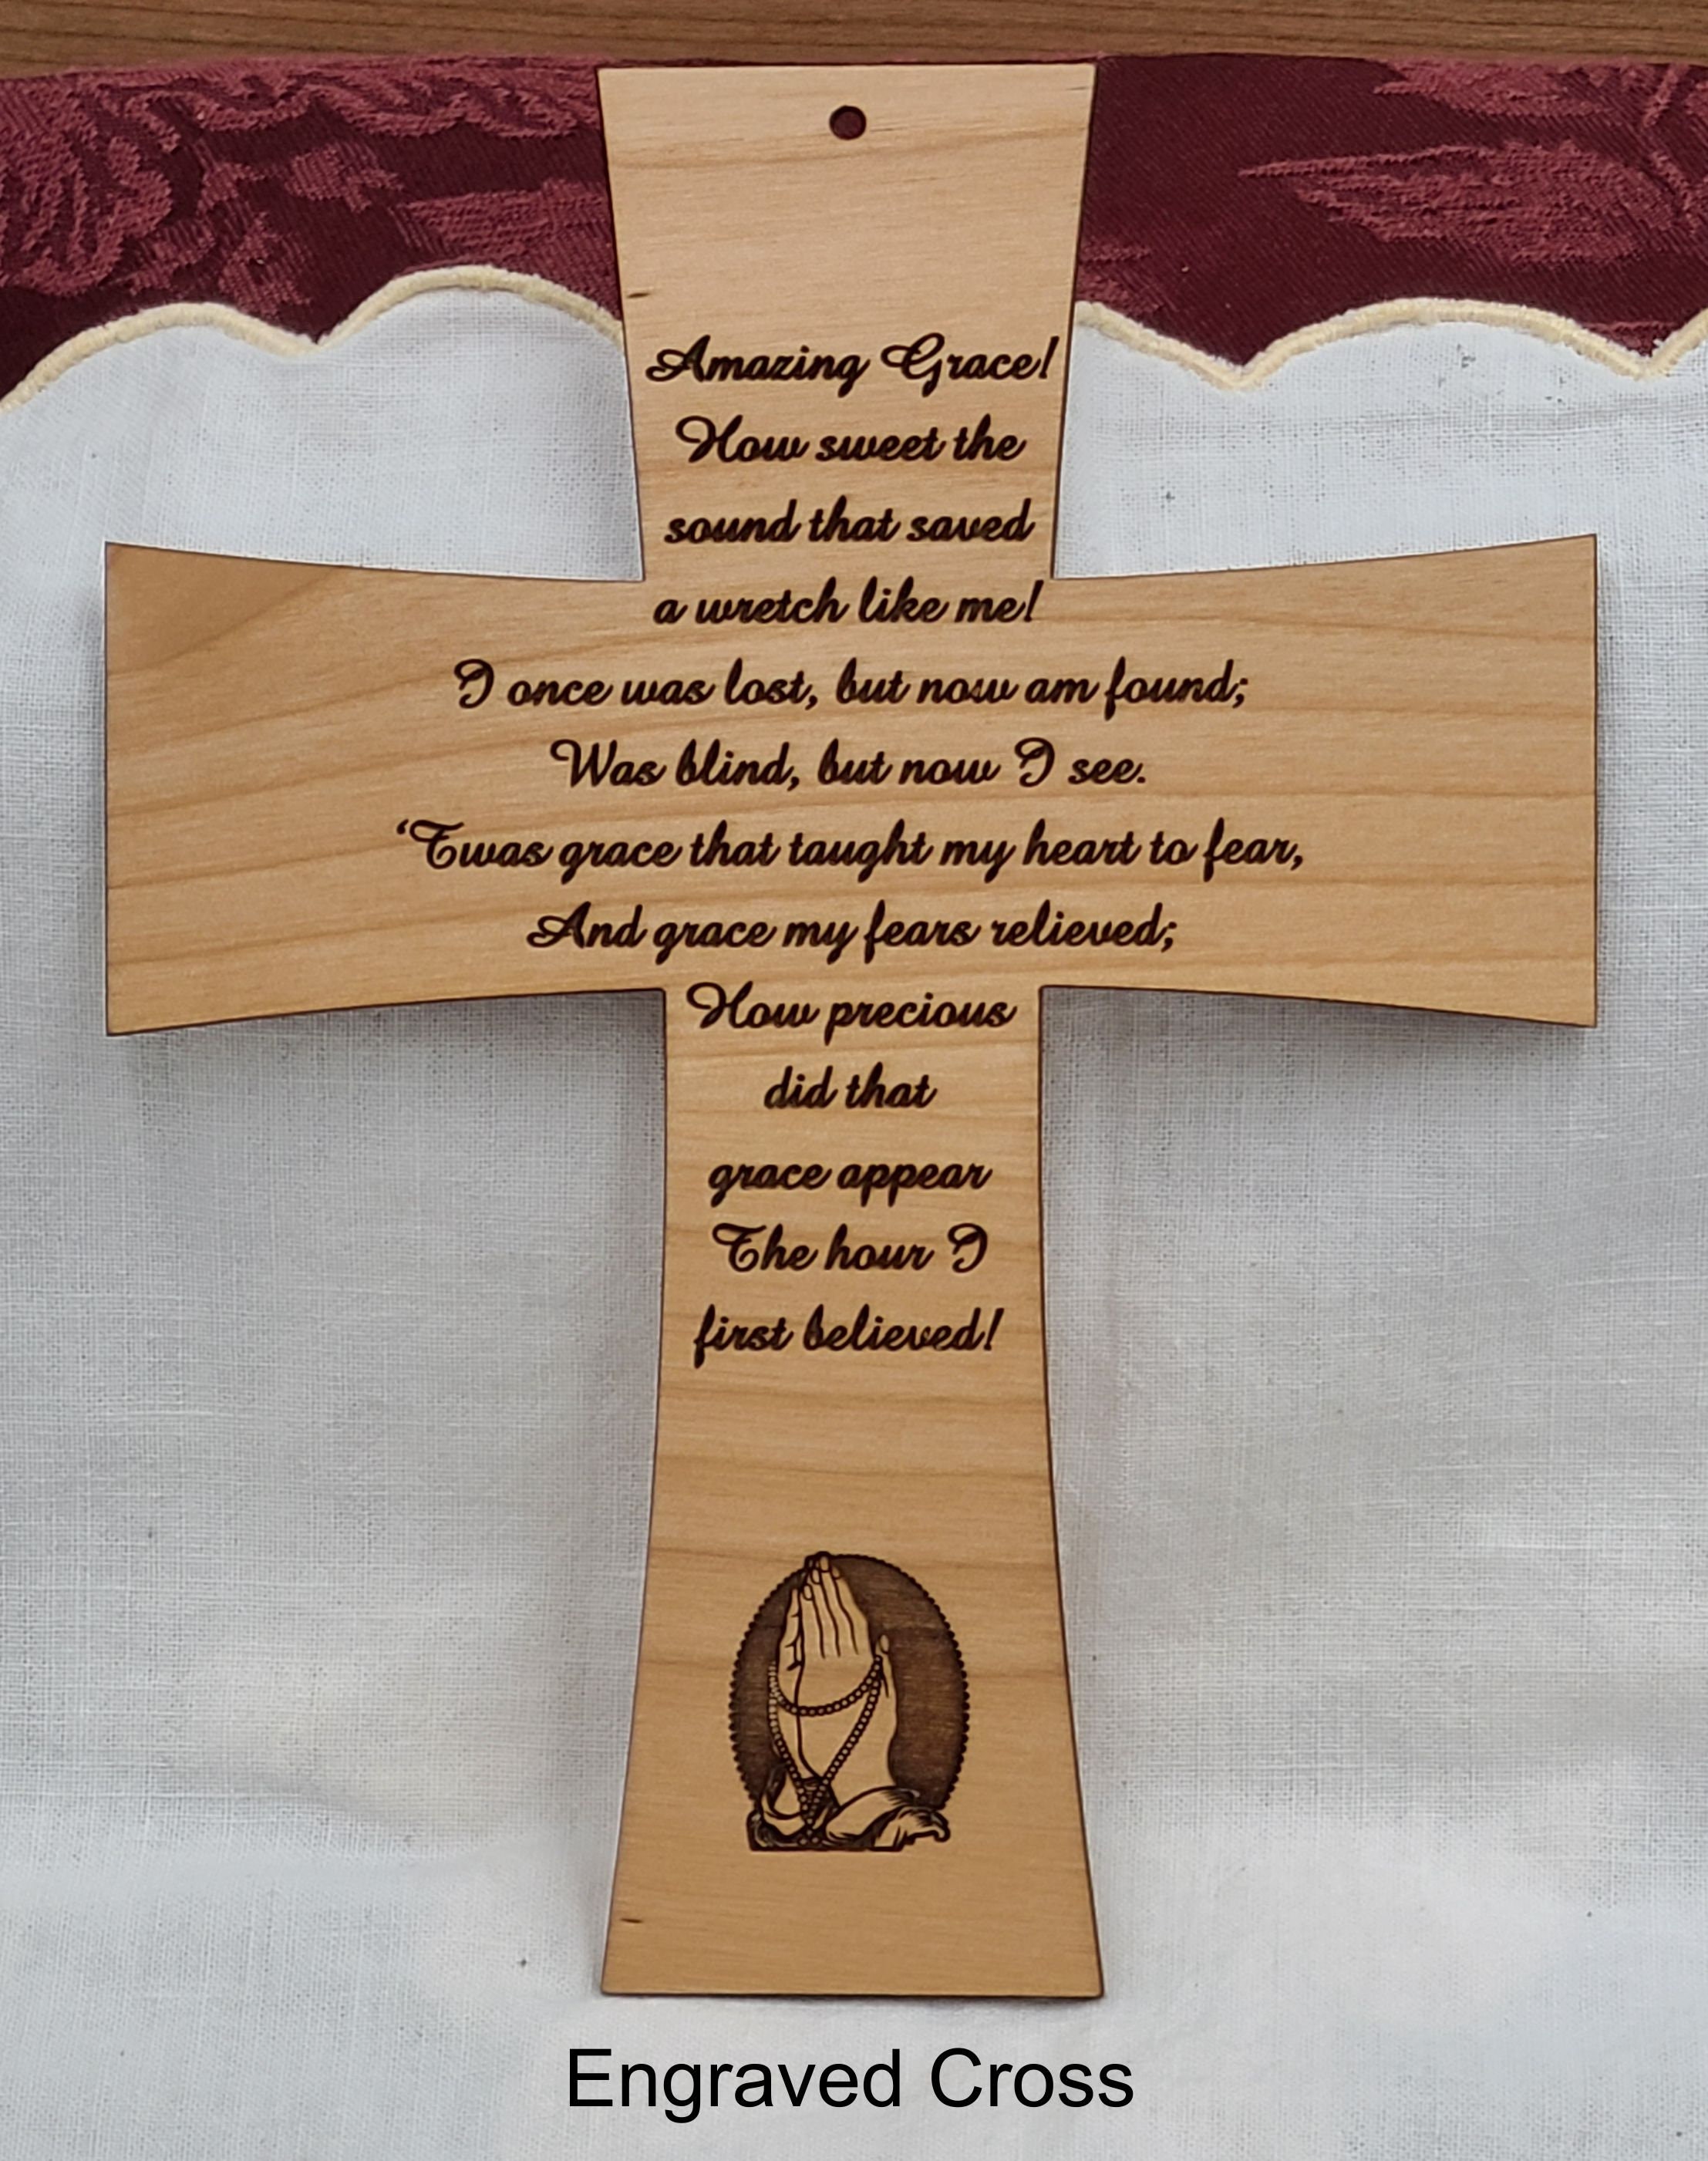 Amazing Grace!
How sweet the
sound that saved
a wretch like me!
I once was lost, but now am found;
Was blind, but now I see.
‘Twas grace that taught my heart to fear,
And grace my fears relieved;
How precious
did that
grace appear
The hour I
first believed!
Engraved Cross